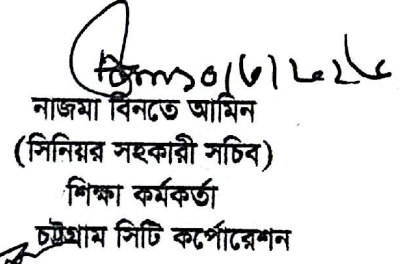 নাজমা বিনতে আমিন
(সিনিয়র সহকারী সচিব)
শিক্ষা কর্মকর্তা
চট্টগ্রাম সিটি কর্পোরেশন